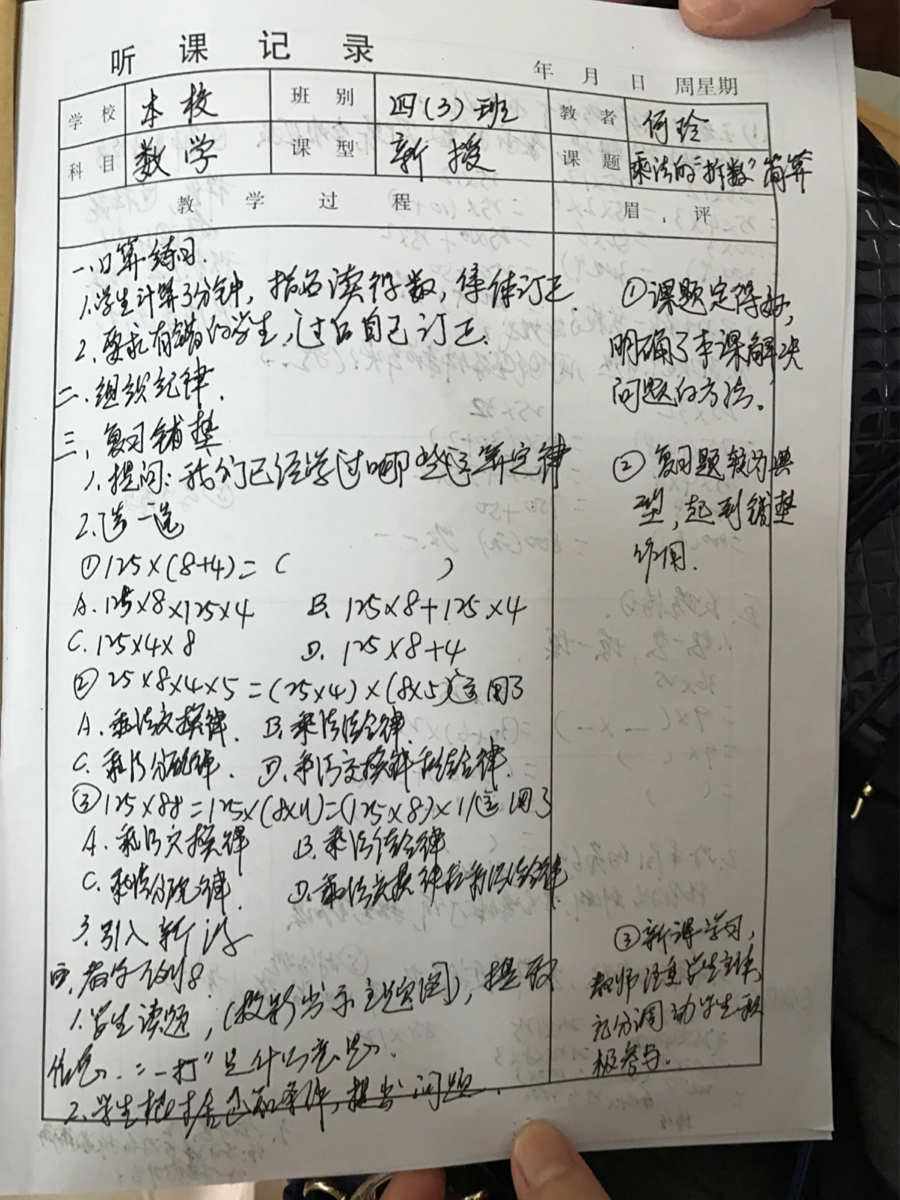 听 课 记 录
年 月 日 周星期
学 校 本校 班 别 四(3)班 教 者 何玲
科 目 数学 课 型 新授 课 题 乘法的“拆数”简算
教 学 过 程 眉 . 评
一、口算练习.
1.学生计算3分钟, 指名读得数, 集体订正.
2.要求有错的学生,过后自己订正.
二.组织纪律.
三、复习铺垫
1.提问:我们已经学过哪些运算定律
2.选一选
①125×(8+4)=( )
A.125×8×125×4 B.125×8+125×4
C.125×4×8 D.125×8+4
②25×8×4×5=(25×4)×(8×5)运用了
A.乘法交换律. B.乘法结合律.
C.乘法分配律. D.乘法交换律和结合律.
③125×88=125×(8×11)=(125×8)×11运用了
A.乘法交换律 B.乘法结合律
C.乘法分配律. D.乘法交换律和乘法结合律
3.引入新课
四.教学例8
1.学生读题,(教师出示主题图),提取
信息.“一打”是什么意思.
2.学生根据条件,提出问题.
①课题定得好,
明确了本课解决
问题的方法。
②复习题较为典
型,起到铺垫
作用.
③新课学习,
教师注重学生主体,
充分调动学生积
极参与。